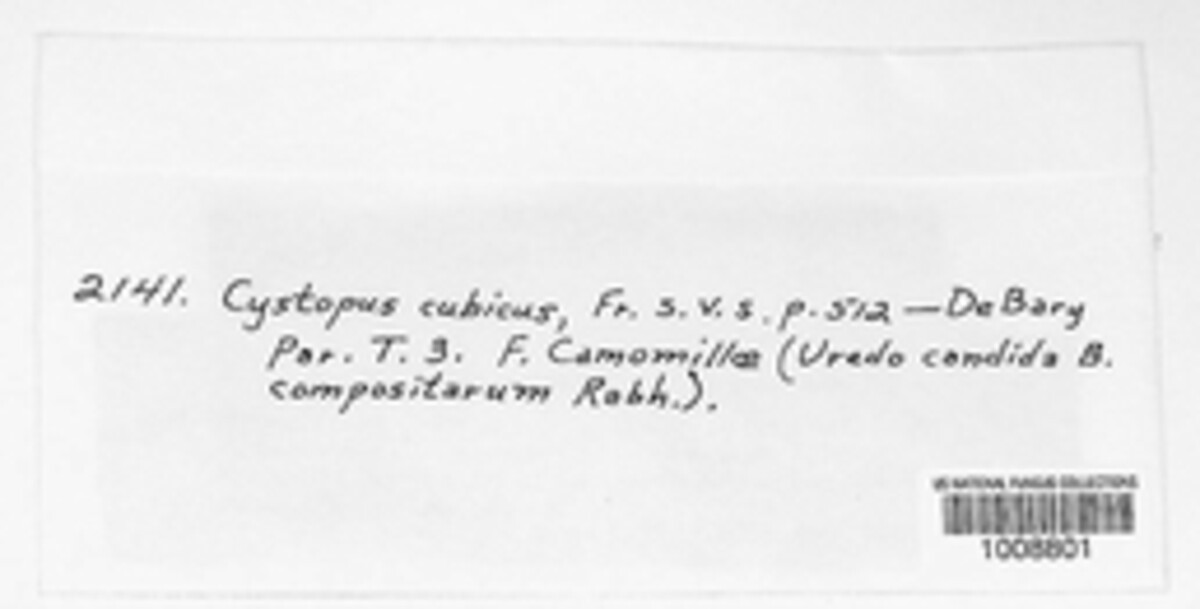 2141. Cystopus cubicus, Fr. S. V. S. p. 512 — De Bary
Par. T. 3. F. Camomillæ (Uredo candida B.
compositarum Rabh.).
US NATIONAL FUNGUS COLLECTIONS
1008801